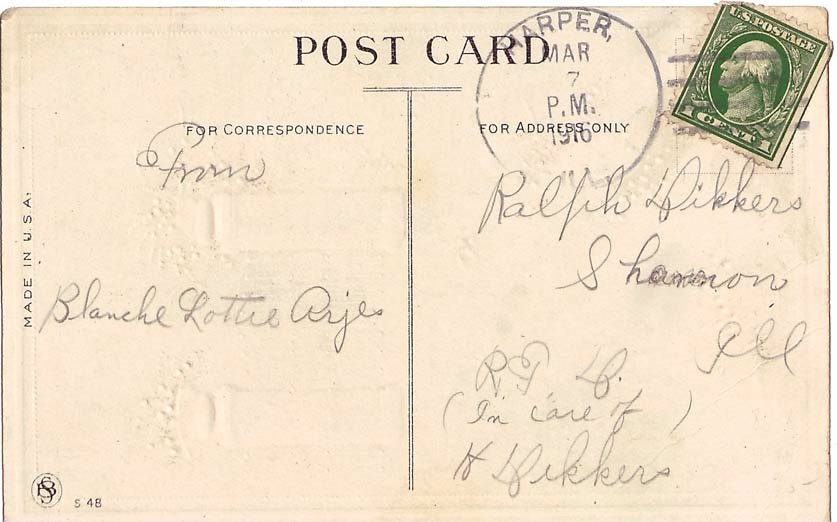 POST CARD
HARPER,
MAR
7
P.M.
1916
U.S. POSTAGE
1 CENT 1
FOR CORRESPONDENCE
FOR ADDRESS ONLY
From
Blanche Lottie Arjes
Ralph Dikkers
Shannon
Ill
R. F. D.
(In care of)
H Dikkers
MADE IN U.S.A.
S 48